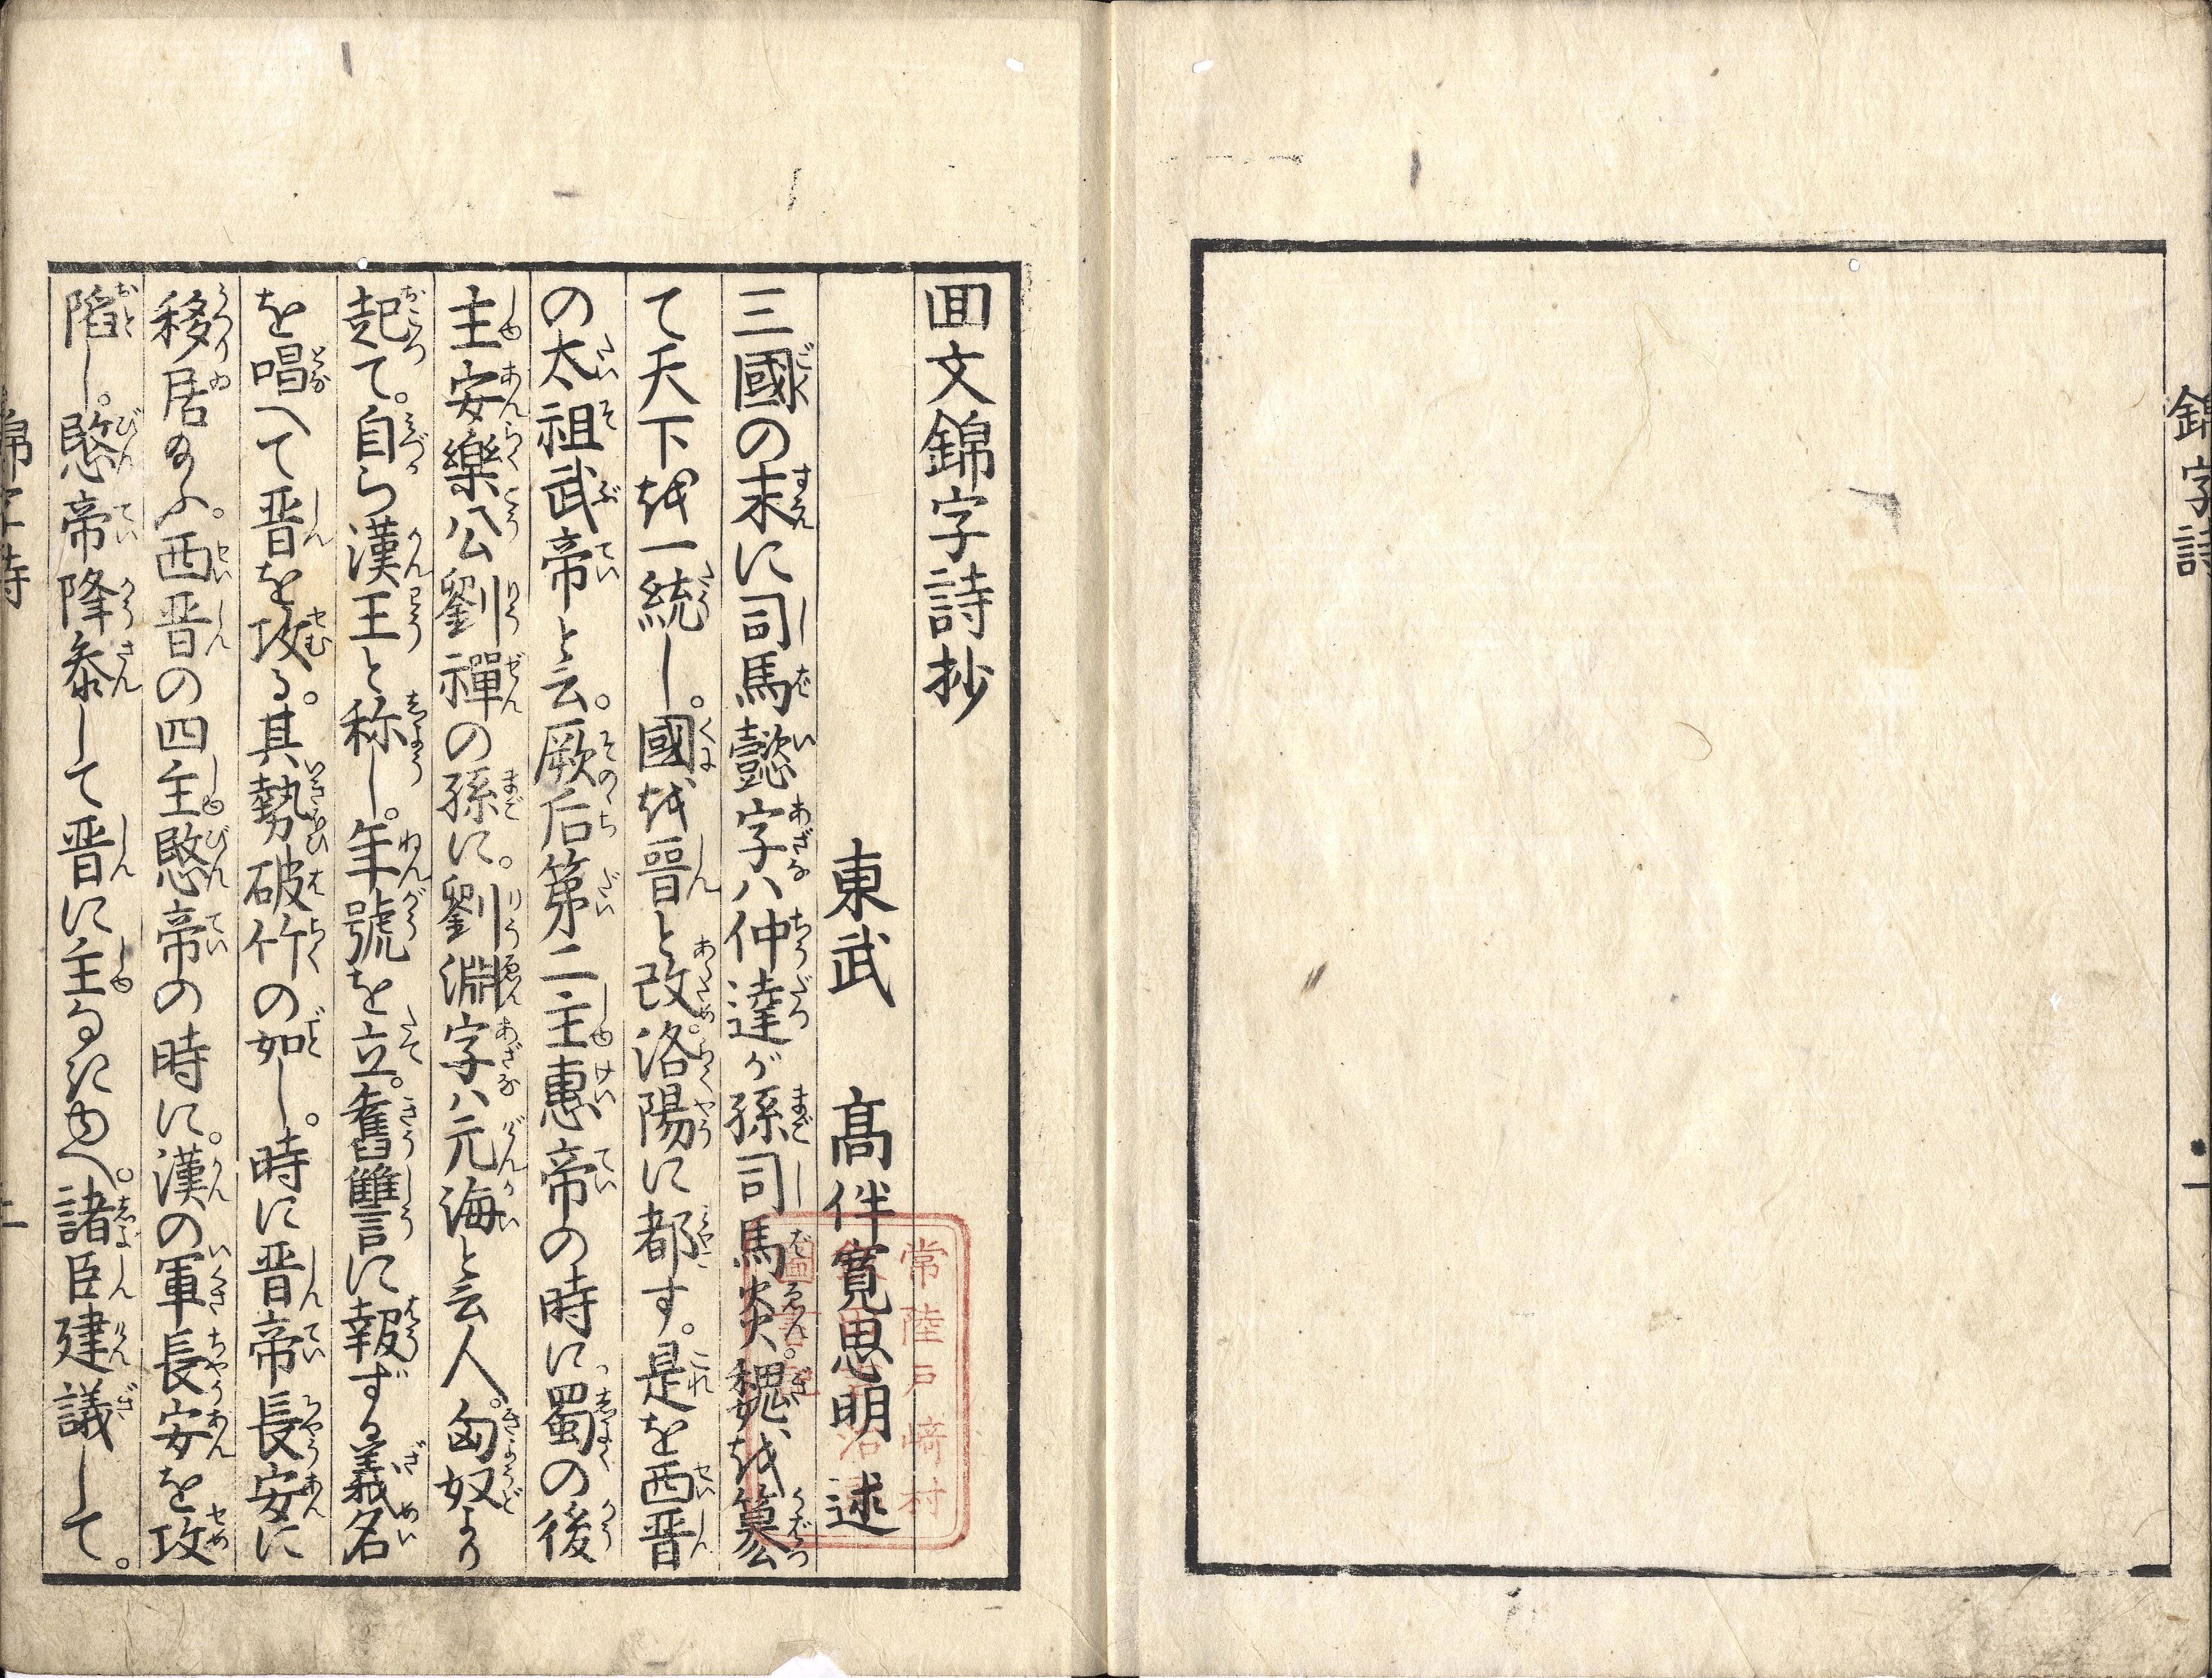 錦字詩
一
回文錦字詩抄
東武　高伴寛思明　述
三國の末に司馬懿字ハ仲達が孫司馬炎。魏を簒
て天下を一統し。國を晉と改。洛陽に都す。是を西晋
の太祖武帝と云。厥后第二主惠帝の時に蜀の後
主安樂公劉禪の孫に。劉淵字ハ元海と云人。匈奴より
起て。自ら漢王と称し。年號を立。舊讐に報ずる義名
を唱へて晋を攻る。其勢破竹の如し。時に晋帝長安に
移居給ふ。西晋の四主愍帝の時に。漢の軍長安を攻
陷し。愍帝降参して晋に主なきゆへ。諸臣建議して。
常陸戸崎村